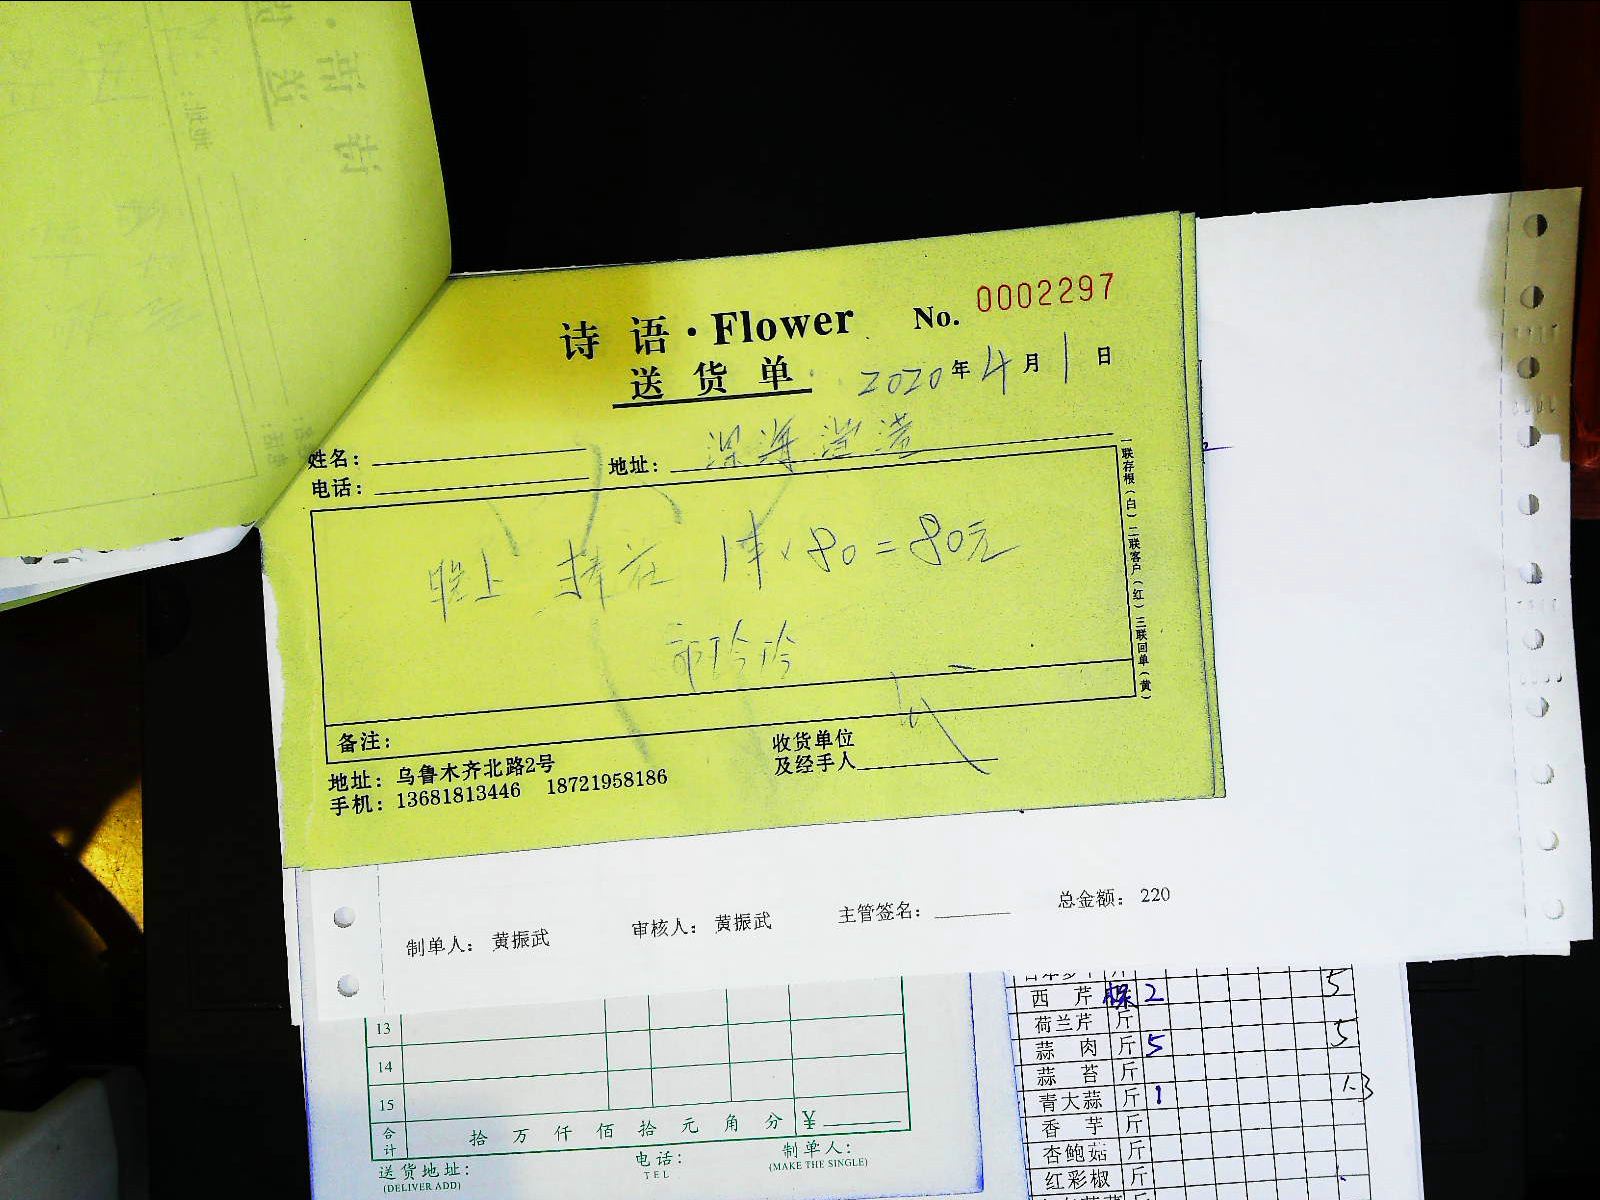 诗 语·Flower No. 0002297
送 货 单 2020年4月1日
姓名： 地址：
电话：
晚上 捧花 1束×80=80元
玲玲
备注：
收货单位
及经手人
地址：乌鲁木齐北路2号
手机：13681813446 18721958186
一联存根（白）二联客户（红）三联回单（黄）
制单人： 黄振武 审核人： 黄振武 主管签名： 总金额： 220
13
14
15
合计 拾 万 仟 佰 拾 元 角 分 ¥
送货地址： 电话： 制单人：
(DELIVER ADD) TEL (MAKE THE SINGLE)
西 芹 2 5
荷兰芹 斤
蒜 肉 斤 5 5
蒜 苔 斤
青大蒜 斤 1 1.3
香 芋 斤
杏鲍菇 斤
红彩椒 斤